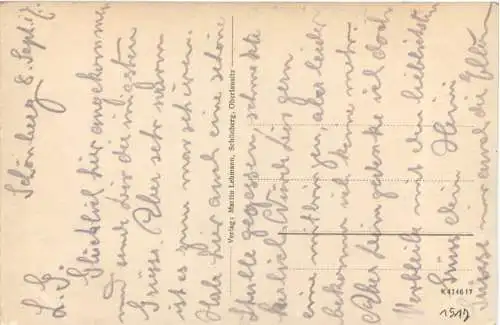 Schönberg 8. Sept. 17.
L. E.
Glücklich hier angekommen
und dir die innigsten
Grüsse. Aber sehr warm
ist es zum marschieren.
Habe hier auch eine schöne
Stulle gegessen, schmeckte
herrlich. Würde dir gern
eine mitbringen, aber leider
bekomm ich keine mehr.
Aber heimgedenke ich doch.
Verbleibe mit den lieblichsten
Gruss dein Heini
Grüsse mir auch die Eltern
Verlag: Martin Lehmann, Schönberg, Oberlausitz
K 41461 7
1517